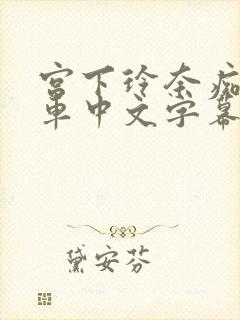 宫下玲奈痴
車中文字幕
黛安芬